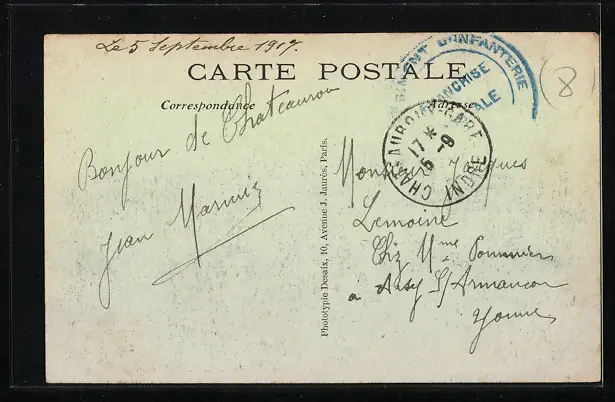 Le 5 Septembre 1917.
CARTE POSTALE
Correspondance
Adresse
D'INFANTERIE
FRANCHISE
CHATEAUROUX-GARE
17 *
6 -9
INDRE
8
Bonjour de Chateauroux
Jean
Phototypie Desaix, 10, Avenue J. Jaurès, Paris.
Monsieur Jacques
Lemoine
Chez Mme
a Ancy S/Armancon
Yonne